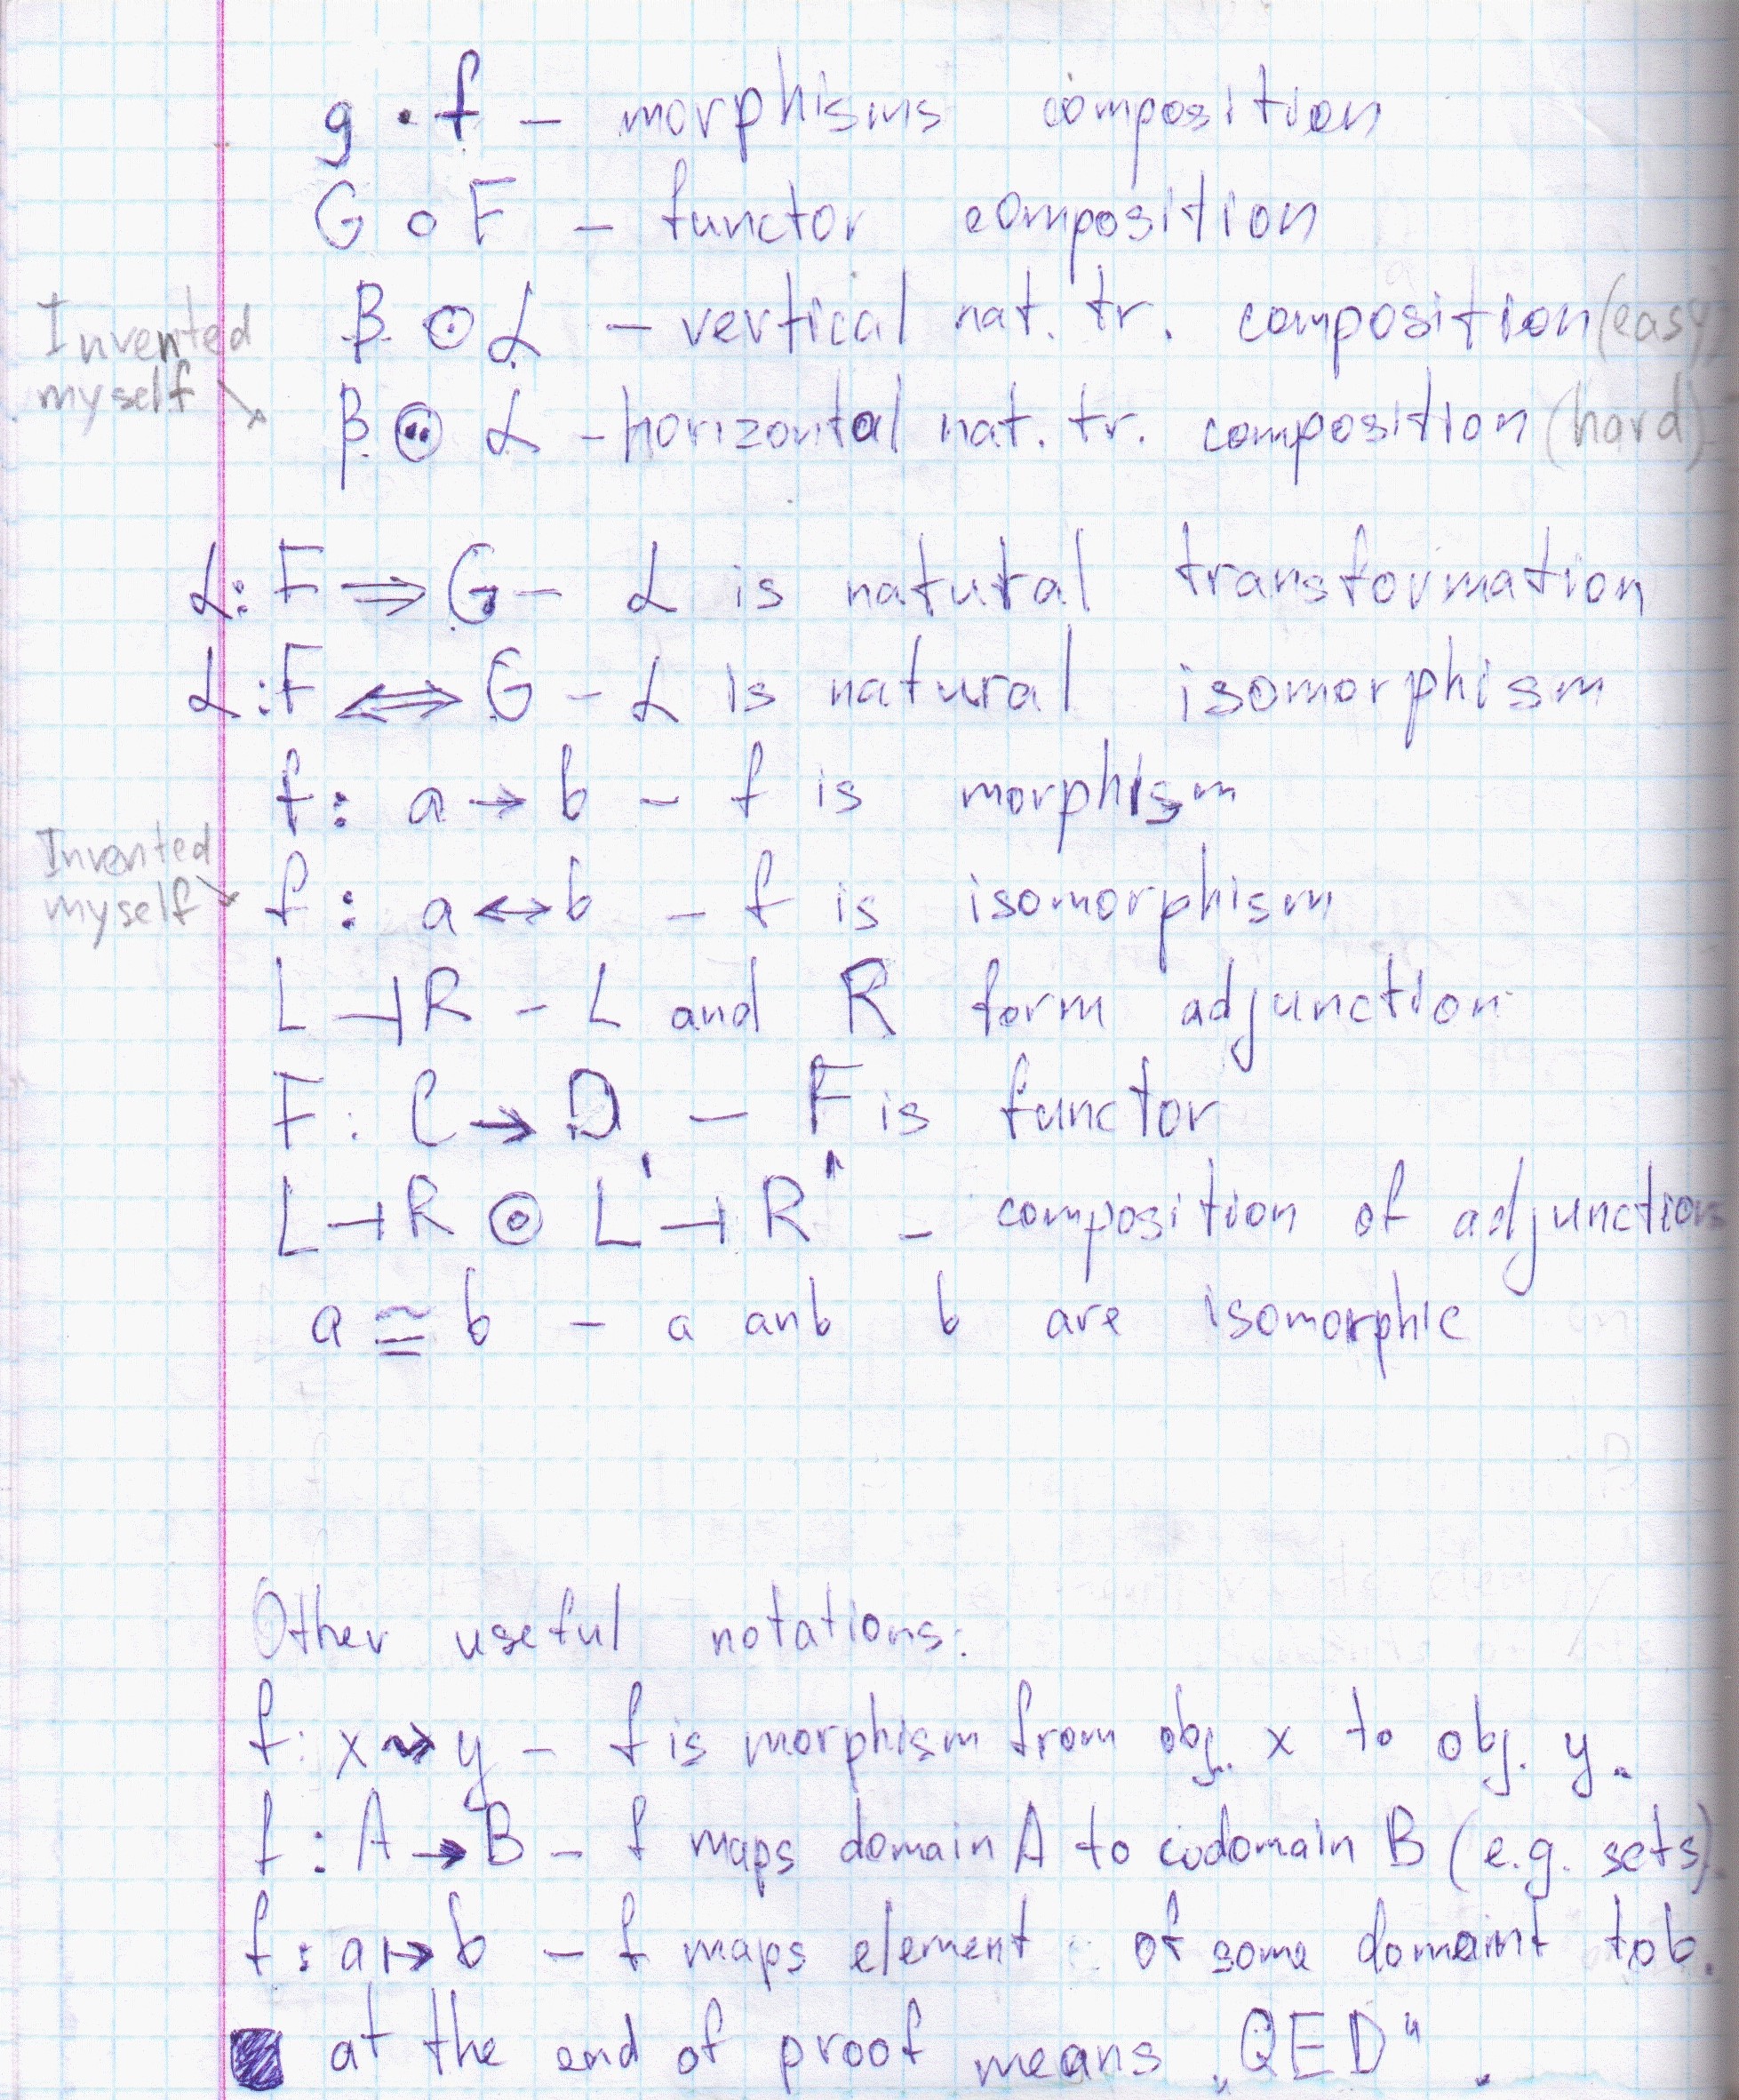 g · f – morphisms composition
G ∘ F – functor composition
Invented
myself ↘
β ⊙ α – vertical nat. tr. composition (easy)
β ⊙ α – horizontal nat. tr. composition (hard)
α: F ⇒ G – α is natural transformation
α: F ⇔ G – α is natural isomorphism
f: a → b – f is morphism
Invented
myself ↘
f: a ↔ b – f is isomorphism
L ⊣ R – L and R form adjunction
F: C → D – F is functor
L ⊣ R ⊚ L' ⊣ R' – composition of adjunctions
a ≅ b – a anb b are isomorphic
Other useful notations:
f: x ⇝ y – f is morphism from obj. x to obj. y.
f: A → B – f maps domain A to codomain B (e.g. sets).
f: a ↦ b – f maps element of some domain to b.
■ at the end of proof means „QED".